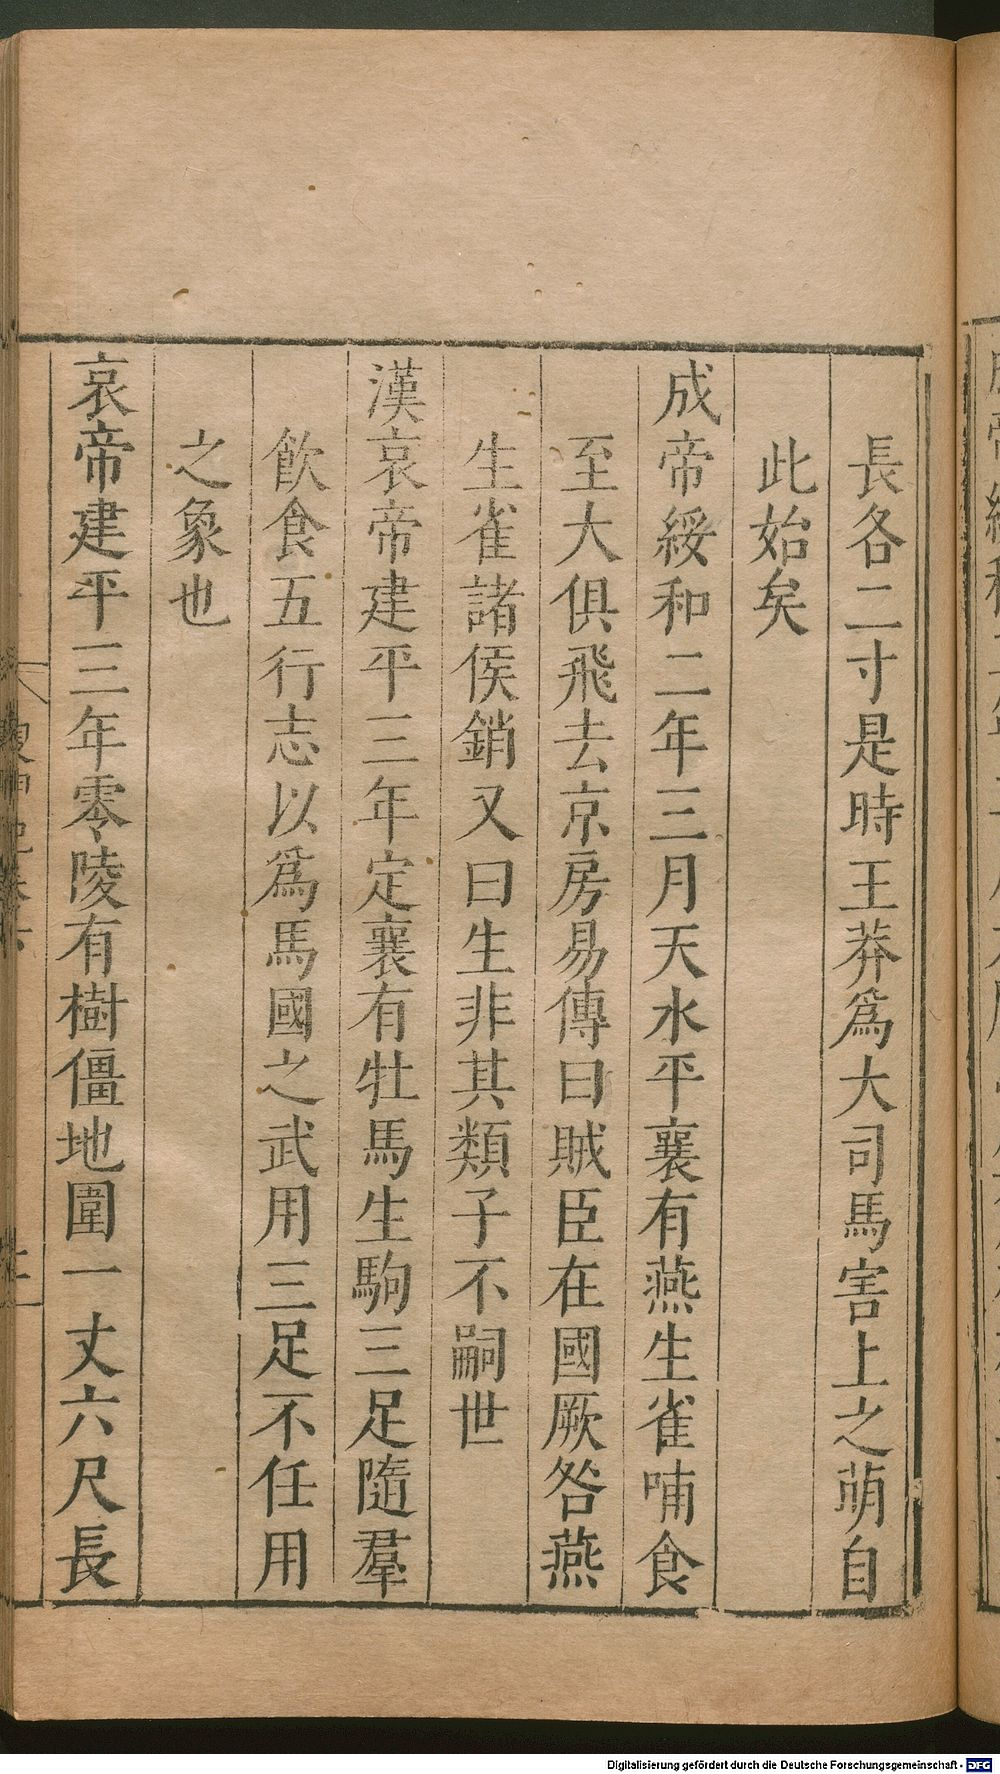 長各二寸是時王莽爲大司馬害上之萌自
此始矣
成帝綏和二年三月天水平襄有燕生雀哺食
至大俱飛去京房易傳曰賊臣在國厥咎燕
生雀諸侯銷又曰生非其類子不嗣世
漢哀帝建平三年定襄有牡馬生駒三足隨羣
飲食五行志以爲馬國之武用三足不任用
之象也
哀帝建平三年零陵有樹僵地圍一丈六尺長
Digitalisierung gefördert durch die Deutsche Forschungsgemeinschaft - DFG